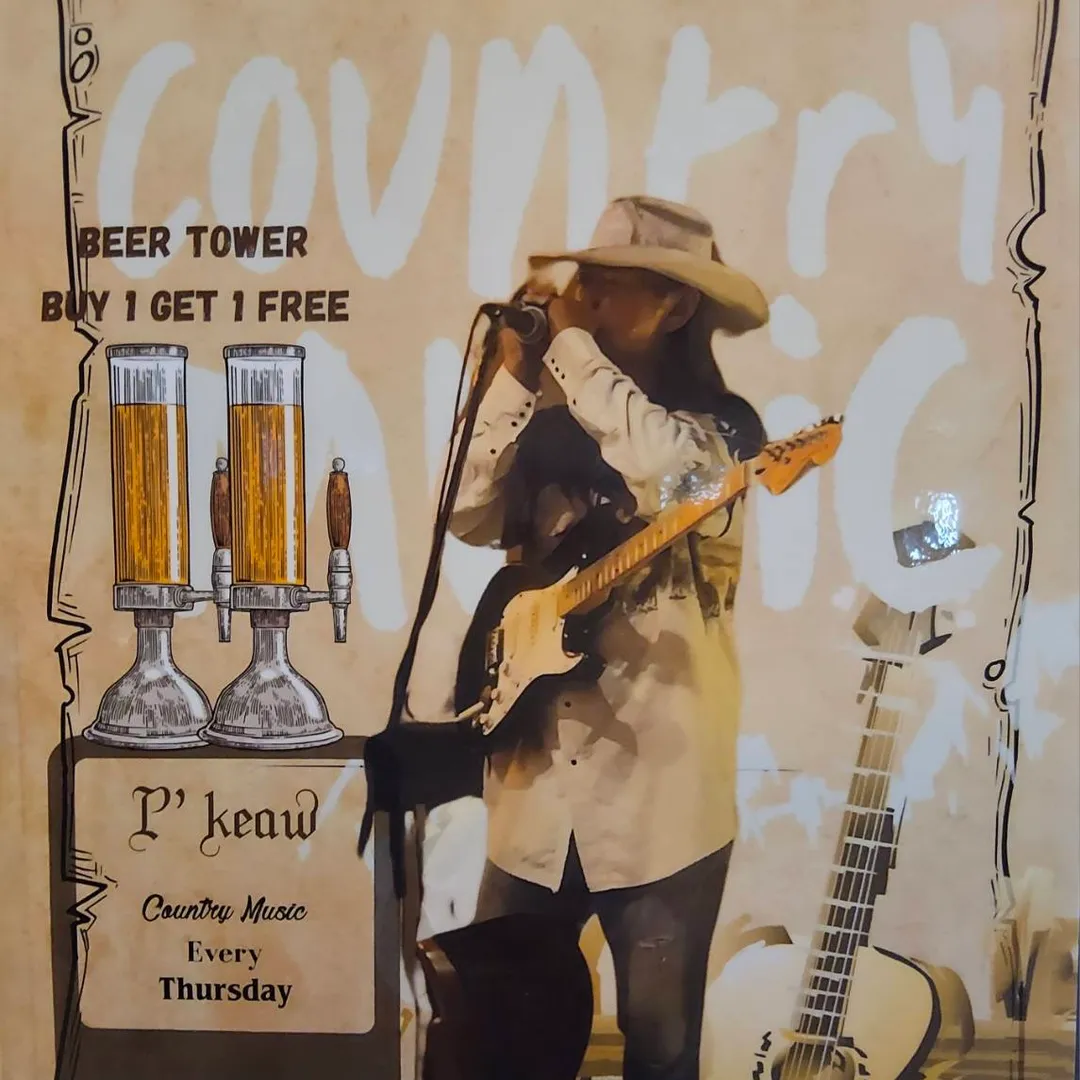 country
music
BEER TOWER
BUY 1 GET 1 FREE
P' keaw
Country Music
Every
Thursday